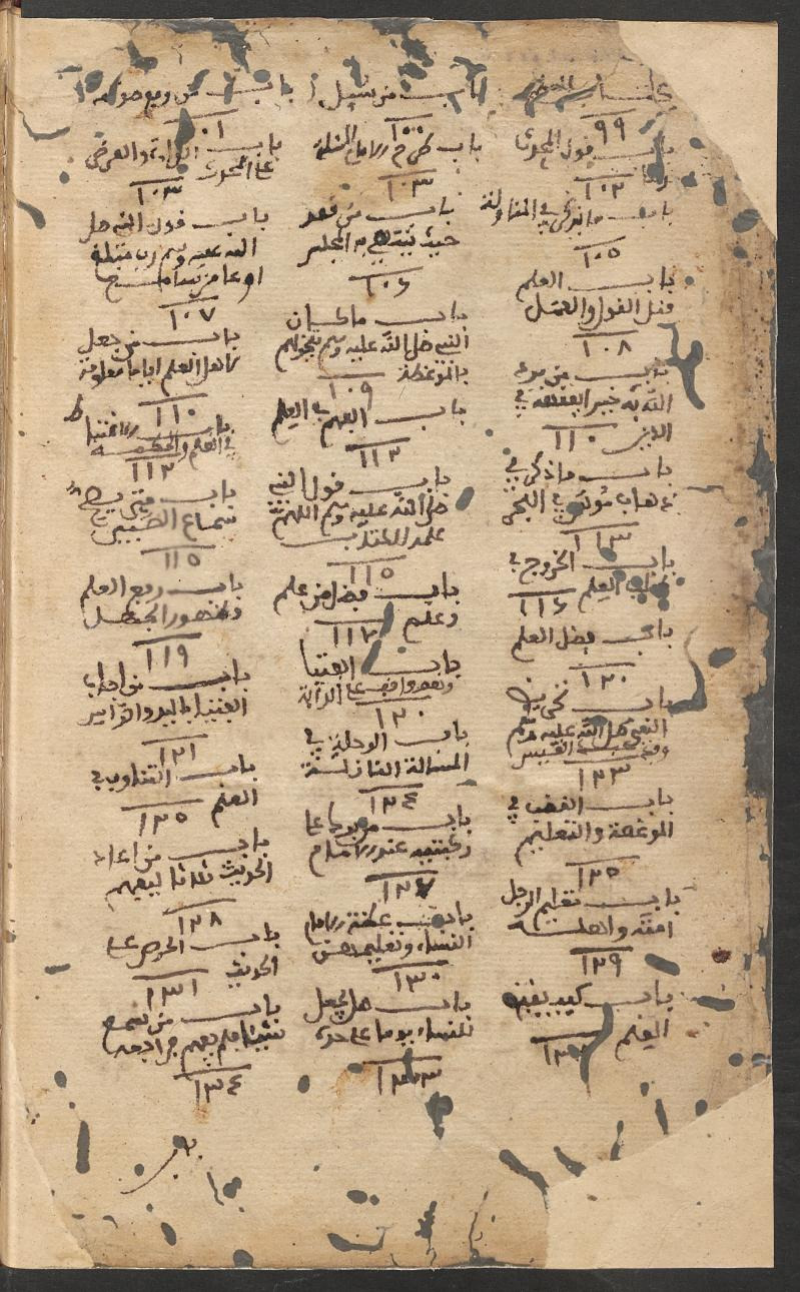 كتاب العلم
٩٩
باب من سئل
١٠٠
باب من رفع صوته
١٠١
باب قول المحدث
١٠٢
باب طرح الامام المسئلة
١٠٣
باب القراءة والعرض
على المحدث
١٠٣
باب ما يذكر في المناولة
١٠٥
باب من قعد
حيث ينتهي به المجلس
١٠٦
باب قول النبي صلى
الله عليه وسلم رب مبلغ
اوعى من سامع
١٠٧
باب العلم
قبل القول والعمل
١٠٨
باب ما كان
النبي صلى الله عليه وسلم يتخولهم
بالموعظة
١٠٩
باب من جعل
لاهل العلم اياما معلومة
١١٠
باب من يرد
الله به خيرا يفقهه في
الدين
١١٠
باب الفهم في العلم
١١٢
باب الاغتباط
في العلم والحكمة
١١٣
باب ما ذكر في
ذهاب موسى في البحر
١١٣
باب قول النبي
صلى الله عليه وسلم اللهم
علمه الكتاب
١١٥
باب متى يصح
سماع الصبي
١١٥
باب الخروج في
طلب العلم
١١٦
باب فضل من علم
وعلم
١١٧
باب رفع العلم
وظهور الجهل
١١٩
باب فضل العلم
١٢٠
باب الفتيا
وهو واقف على الدابة
١٢٠
باب من اجاب
الفتيا باليد والراس
١٢١
باب تحريض
النبي صلى الله عليه وسلم
وفد عبد القيس
١٢٣
باب الرحلة في
المسالة النازلة
١٢٤
باب التناوب في
العلم
١٢٥
باب الغضب في
الموعظة والتعليم
١٢٥
باب من برك على
ركبتيه عند الامام
١٢٧
باب من اعاد
الحديث ثلاثا ليفهم
١٢٨
باب تعليم الرجل
امته واهله
١٢٩
باب عظة الامام
النساء وتعليمهن
١٣٠
باب الحرص على
الحديث
١٣١
باب كيف يقبض
العلم
١٣٢
باب هل يجعل
للنساء يوما على حدة
١٣٣
باب من سمع
شيئا فلم يفهم فراجعه
١٣٤